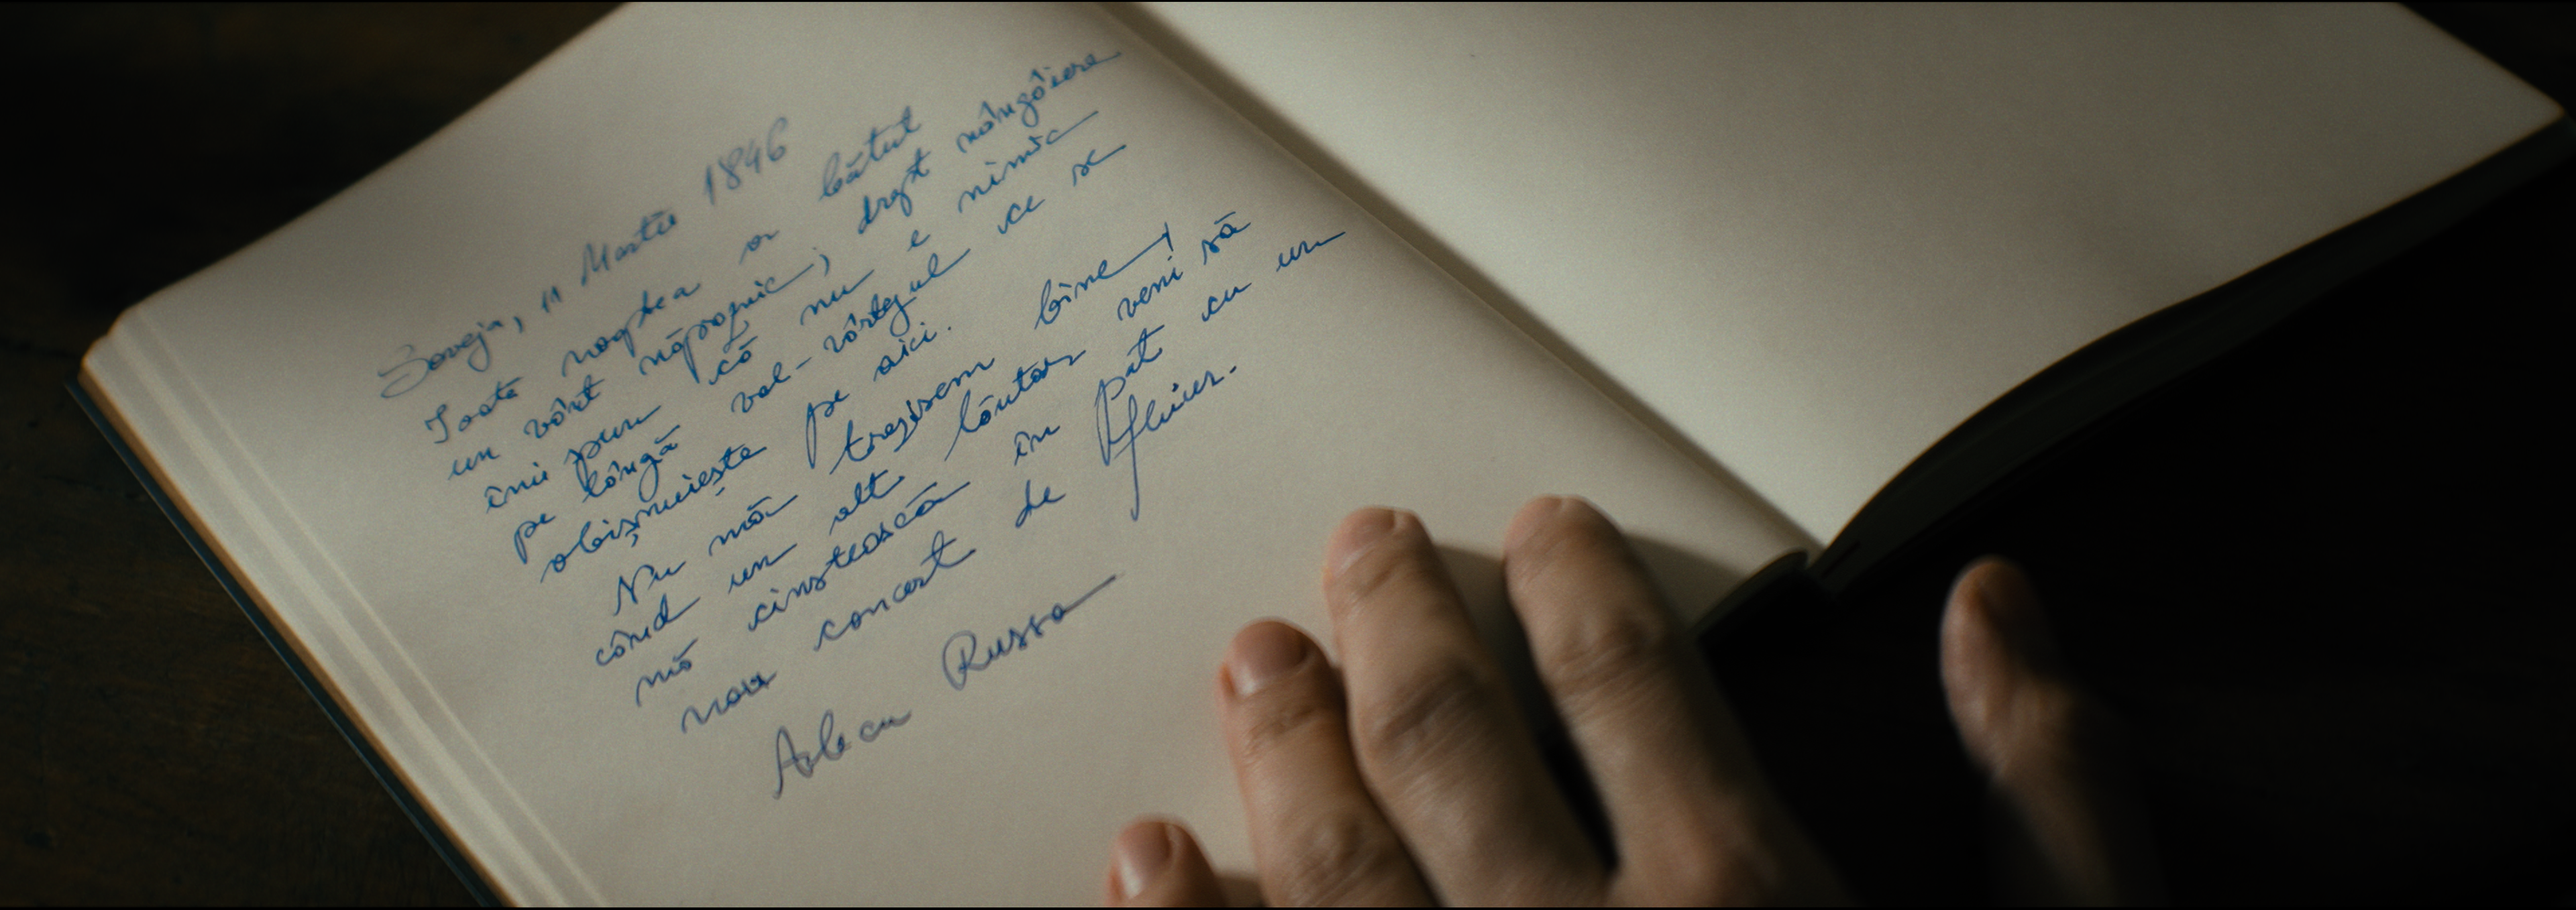 Soveja, 11 Martie 1846
Toată noaptea a bătut
un vânt năpraznic; drept mângâiere
îmi spun că nu e nimic
pe lângă val-vârtejul ce se
obișnuiește pe aici.
Nu mă trezisem bine
când un alt lăutar veni să
mă cinstească în pat cu un
nou concert de fluier.
Alecu Russo